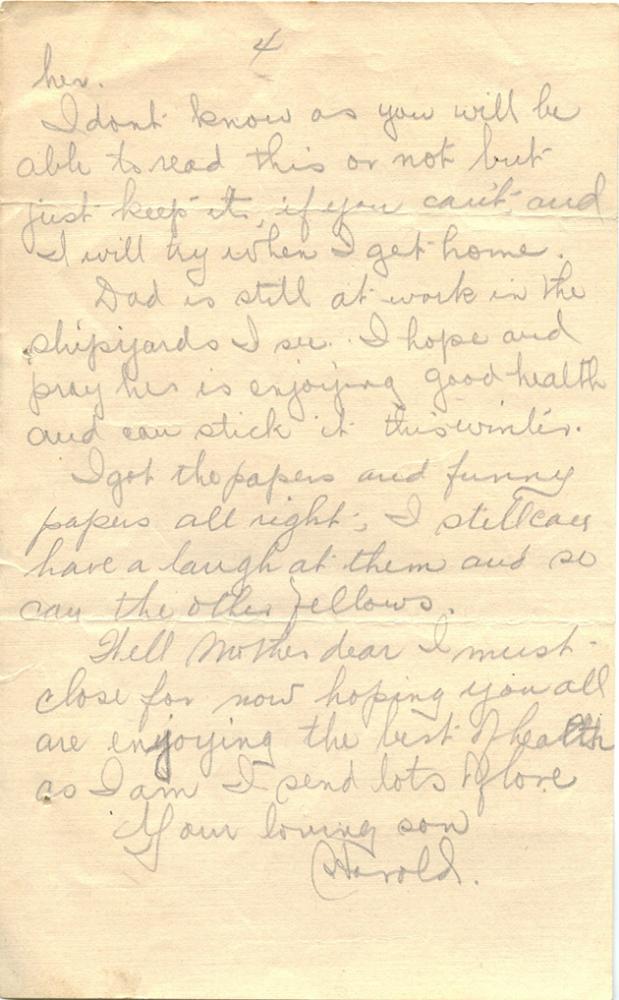 4
her.
I dont know as you will be
able to read this or not but
just keep it, if you can't and
I will try when I get home.
Dad is still at work in the
shipyards I see. I hope and
pray he is enjoying good health
and can stick it this winter.
I got the papers and funny
papers all right, I still can
have a laugh at them and so
can the other fellows.
Well Mother dear I must
close for now hoping you all
are enjoying the best of health
as I am I send lots of love
Your loving son
Harold.